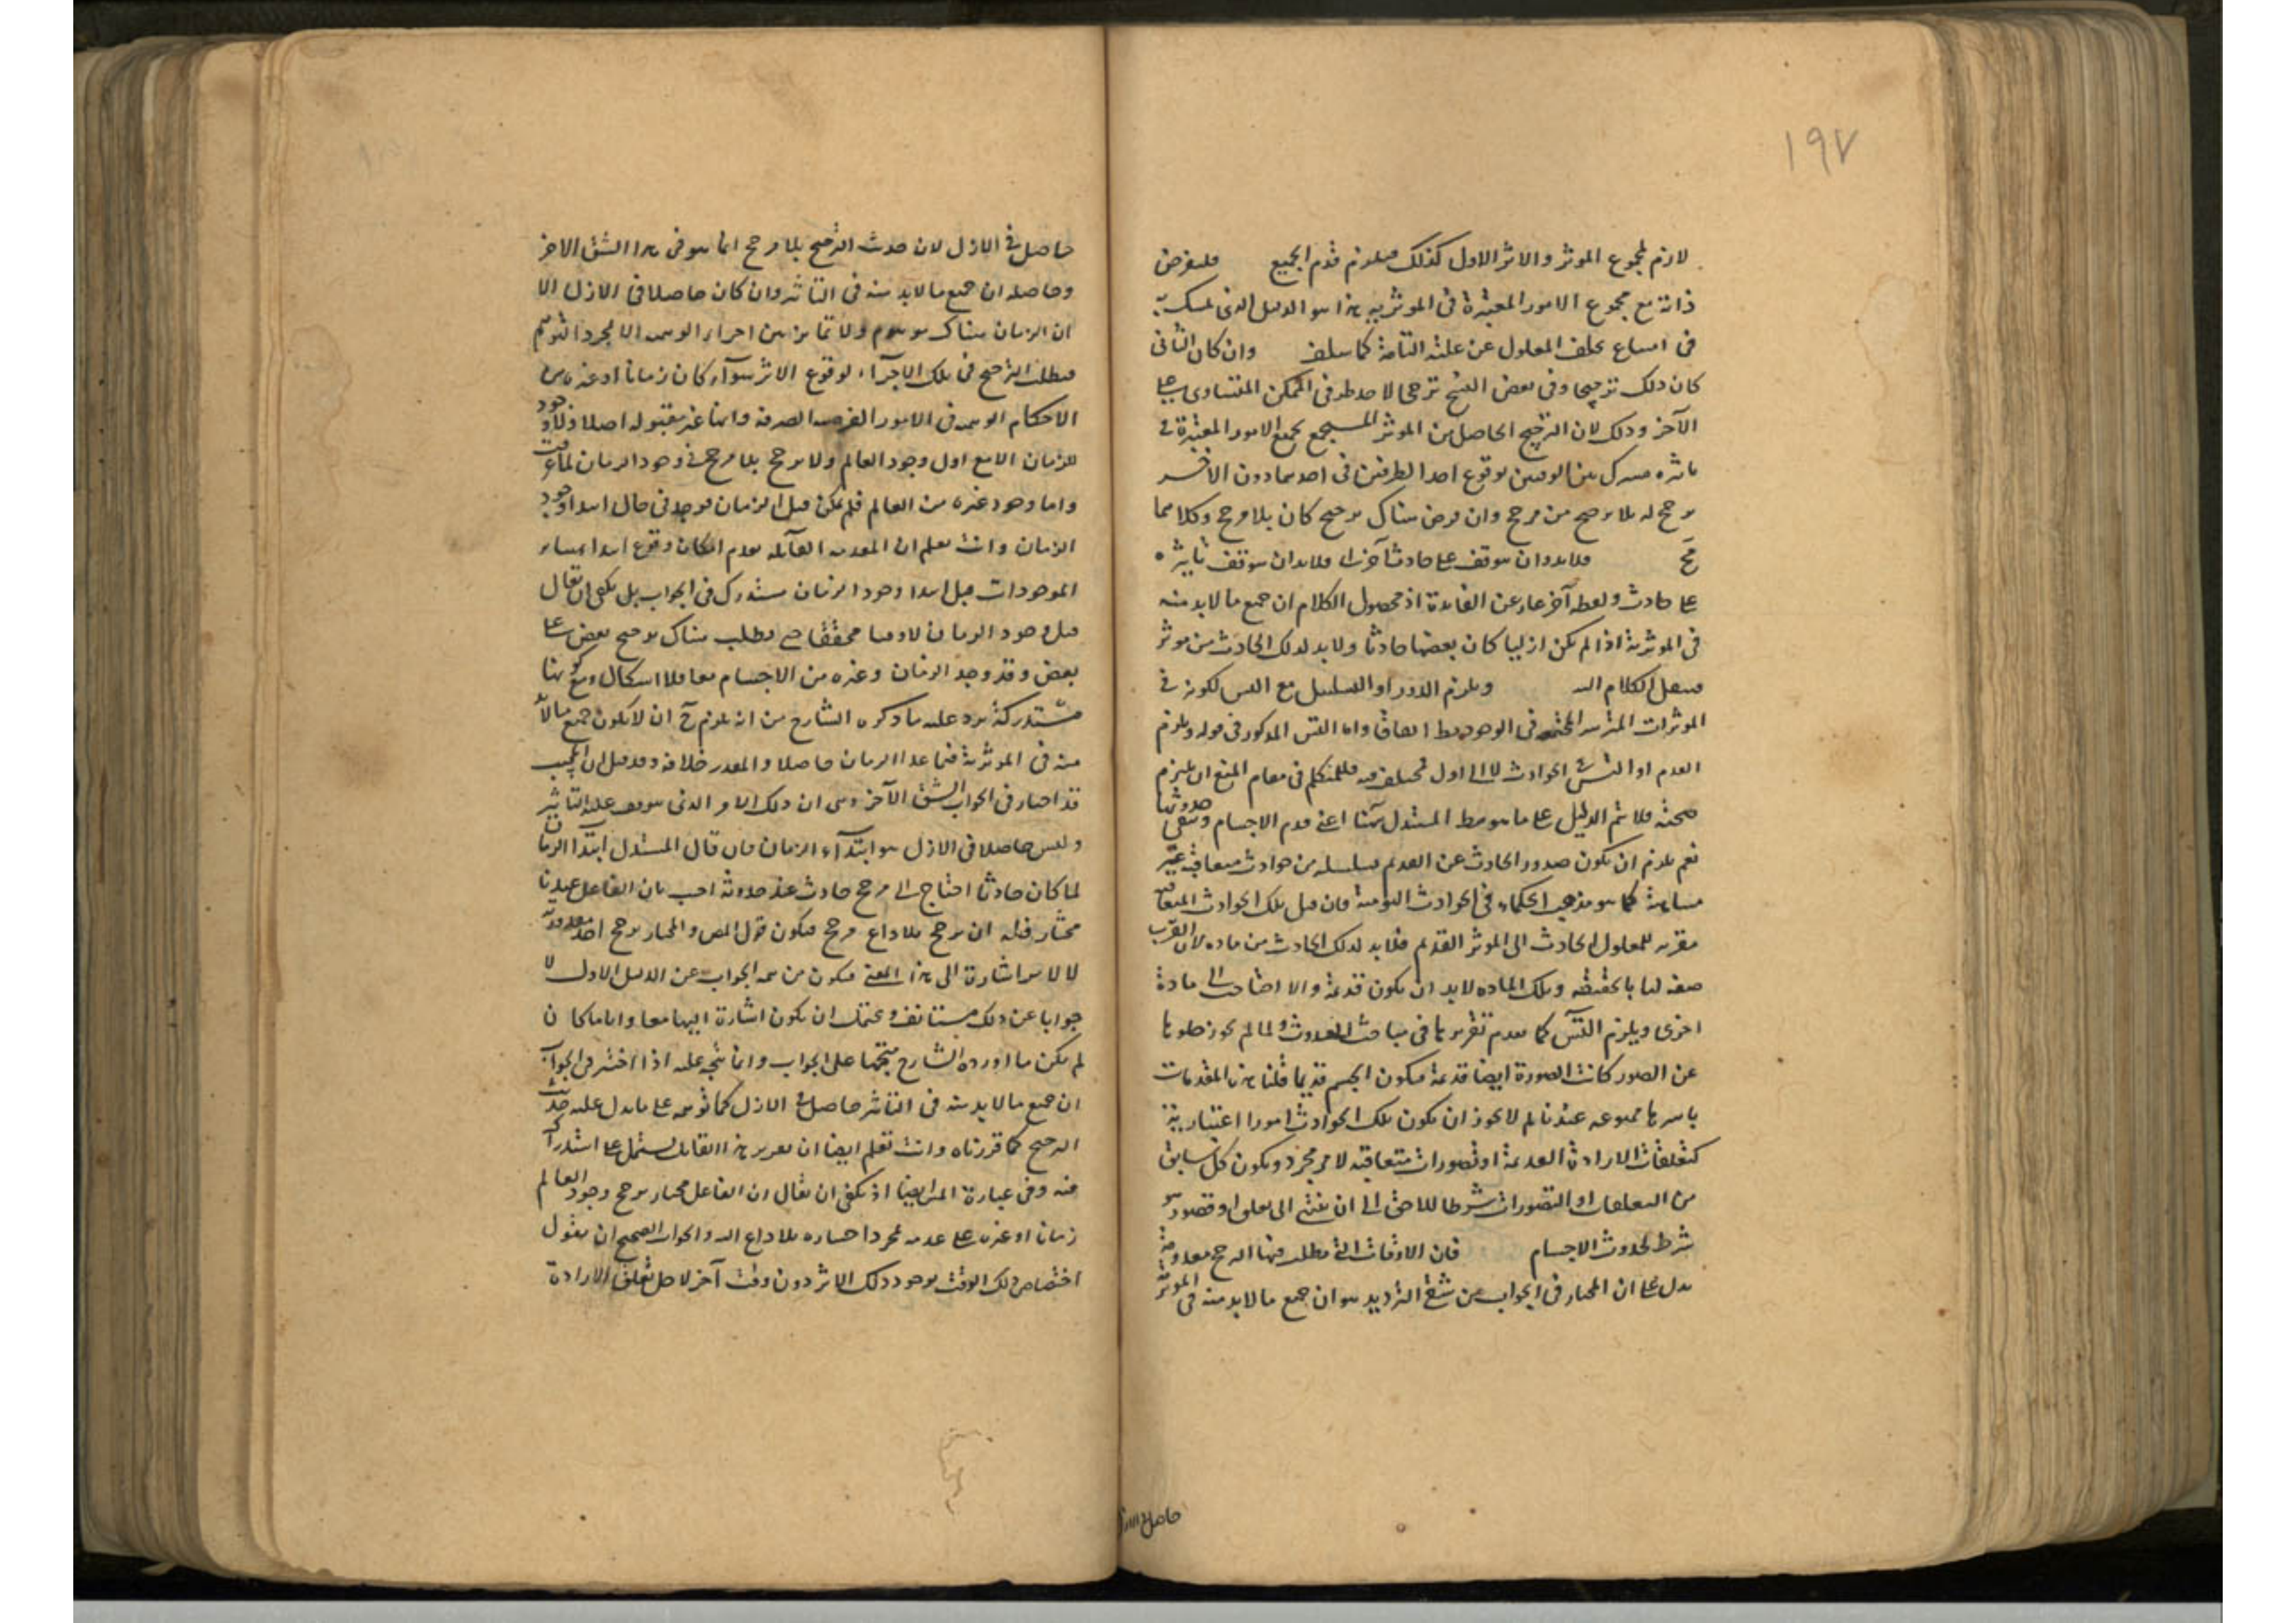 ١٩٧
لازم لمجموع الموثر والاثر الاول كذلك فيلزم قدم الجميع فلنفرض
ذاته مع مجموع الامور المعتبرة فى الموثرية هذا هو الدليل الذى تمسك به
فى امتناع تخلف المعلول عن علته التامة كما سلف وان كان الثانى
كان ذلك ترجيحا وفى بعض النسخ ترجحا لاحد طرفى الممكن المتساوى على
الآخر وذلك لان الترجيح الحاصل من الموثر المستجمع لجميع الامور المعتبرة فى
تاثيره مشترك بين الوقتين فوقوع احد الطرفين فى احدهما دون الآخر
ترجح له بلا ترجيح من مرجح وان فرض هناك ترجيح كان بلا مرجح وكلاهما
مح فلابد وان يتوقف على حادث آخر اى فلابد ان يتوقف تاثيره
على حادث ولفظه آخر عار عن الفايدة اذ محصول الكلام ان جميع مالابد منه
فى الموثرية اذا لم يكن ازليا كان بعضها حادثا ولابد لذلك الحادث من موثر
فينقل الكلام اليه ويلزم الدور او التسلسل مع التس لكونه فى
الموثرات المترتبة المجتمعة فى الوجود بط اتفاقا واما التس المذكور فى قوله ويلزم
القدم او التس فى الحوادث لا الى اول فمختلف فيه فللمتكلم فى مقام المنع ان يلتزم
صحته فلا يتم الدليل على ما هو مط المستدل هنا اعنى قدم الاجسام ونفى حدوثها
نعم يلزم ان يكون صدور الحادث عن القديم بسلسله من حوادث متعاقبة غير
متناهية كما هو مذهب الحكماء فى الحوادث اليومية فان قيل تلك الحوادث المتعاقبه
مقربه للمعلول الحادث الى الموثر القديم فلابد لذلك الحادث من ماده لان القرب
صفه لها بالحقيقه وتلك الماده لابد ان يكون قديمة والا احتاجت الى مادة
اخرى ويلزم التس كما تقدم تقريرها فى مباحث الحدوث ولما لم يجوز خلوها
عن الصور كانت الصورة ايضا قديمة فيكون الجسم قديما قلنا هذه المقدمات
باسرها ممنوعه عندنا لم لا يجوز ان يكون تلك الحوادث امورا اعتبارية
كتعلقات الارادة القديمة او تصورات متعاقبه لامر مجرد ويكون كل سابق
من التعلقات او التصورات شرطا للاحق الى ان ينتهى الى تعلق او تصور هو
شرط لحدوث الاجسام فان الاوقات التى يطلب فيها الترجيح معدومة
يدل على ان المختار فى الجواب من شقى الترديد هو ان جميع مالابد منه فى الموثرية
حاصل فى الازل
حاصل فى الازل لان حديث الترجيح بلا مرجح انما هو فى هذا الشق الاخر
وحاصله ان جميع مالابد منه فى التاثير وان كان حاصلا فى الازل الا
ان الزمان هناك موهوم ولا تمايز بين اجزاء الوهمية الا بمجرد التوهم
فيطلب الترجيح فى تلك الاجزاء لوقوع الاثر سواء كان زمانا او غيره من
الاحكام الوهميه فى الامور الفرضية الصرفة وانها غير مقبوله اصلا اذ لا وجود
للزمان الا مع اول وجود العالم ولا ترجح بلا مرجح فى وجود الزمان لما عرفت
واما وجود غيره من العالم فلم يمكن قبل الزمان فوجد فى حال ابتداء وجود
الزمان وانت تعلم ان المقدمه القائله بعدم امكان وقوع ابتداء ساير
الموجودات قبل ابتداء وجود الزمان مستدرك فى الجواب بل يكفى ان يقال
قبل وجود الزمان لا وقت محققا حتى يطلب هناك ترجيح بعض على
بعض وقد وجد الزمان وغيره من الاجسام معا فلا اشكال ومع كونها
مستدركة يرد عليه ما ذكره الشارح من انه يلزم ح ان لا يكون جميع مالابد
منه فى الموثرية فيما عدا الزمان حاصلا والمقدر خلافه وقد قيل ان المجيب
قد اختار فى الجواب الشق الآخر وهى ان ذلك الامر الذى يتوقف عليه التاثير
وليس حاصلا فى الازل هو ابتداء الزمان فان قال المستدل ابتداء الزمان
لما كان حادثا احتاج الى مرجح حادث عند حدوثه اجيب بان الفاعل عندنا
مختار فله ان يرجح بلا داع مرجح فيكون قول المص والمختار يرجح احد مقدوريه
لا لامر اشارة الى هذا المعنى فيكون من تتمه الجواب عن الدليل الاول لا
جوابا عن ذلك مستانف ويحتمل ان يكون اشارة اليهما معا واياما كان
لم يكن ما اورده الشارح متجها على الجواب وانما يتجه عليه اذا اختير فى الجواب
ان جميع مالابد منه فى التاثير حاصل فى الازل كما توهمه على ما يدل عليه حديث
الترجيح كما قررناه وانت تعلم ايضا ان تقرير هذا القائل يشتمل على استدراك
فيه وفى عبارة المتن ايضا اذ يكفى ان يقال ان الفاعل مختار يرجح وجود العالم
زمانا او غيره على عدمه بمجرد اختياره بلا داع اليه والجواب الصحيح ان يقول
اختصاص ذلك الوقت بوجود ذلك الاثر دون وقت آخر لاجل تعلق الارادة